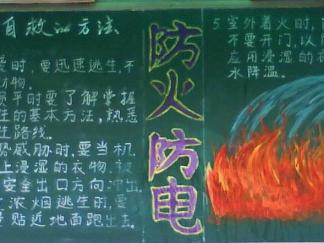 自救的方法
时，要迅速逃生，不
财物。
平时要了解掌握
生的基本方法，熟悉
生路线。
威胁时，要当机
上浸湿的衣物、被
安全出口方向冲出
浓烟逃生时，要
贴近地面跑出去。
防火防电
5.室外着火时，
不要开门，以
应用浸湿的
水降温。